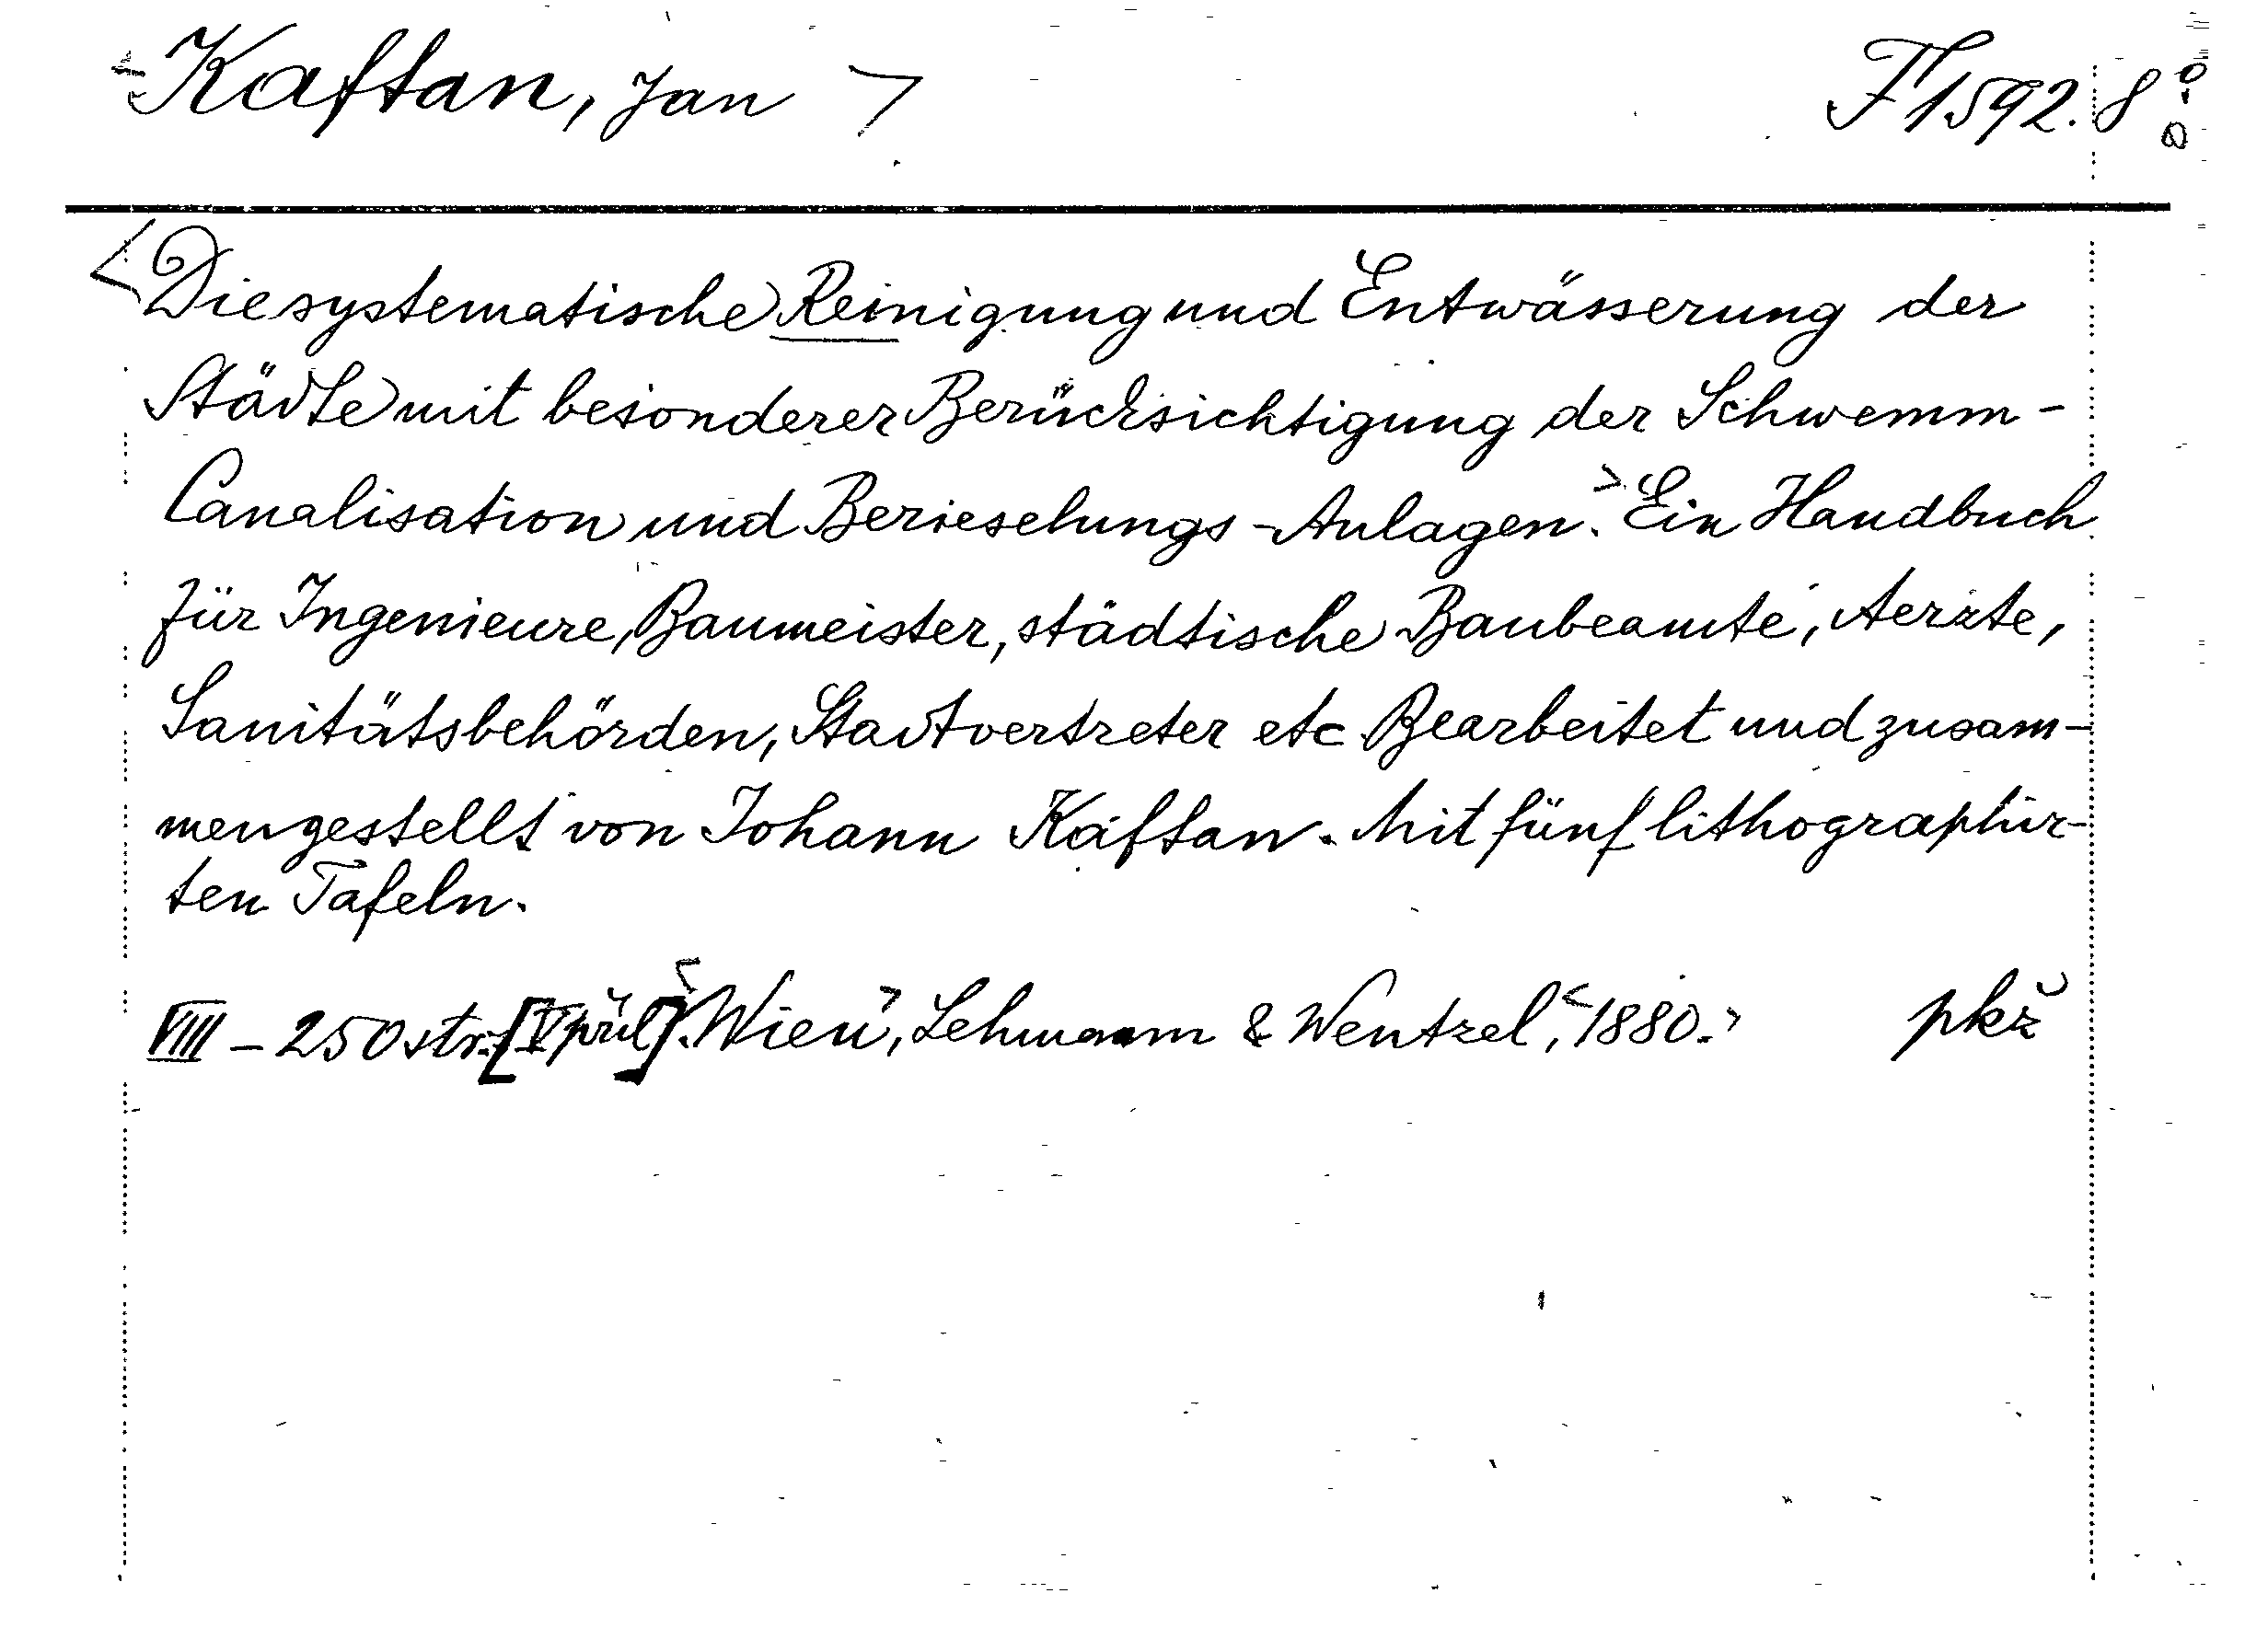 Kaftan, Jan F 1592. 8°
<Die systematische Reinigung und Entwässerung der
Städte mit besonderer Berücksichtigung der Schwemm-
Canalisation und Berieselungs-Anlagen.> Ein Handbuch
für Ingenieure, Baumeister, städtische Baubeamte, Aerzte,
Sanitätsbehörden, Stadtvertreter etc. Bearbeitet und zusam-
mengestellt von Johann Kaftan. Mit fünf lithographir-
ten Tafeln.
VIII - 250 str. [V příl]. <Wien>, Lehmann & Wentzel, <1880.> pkž